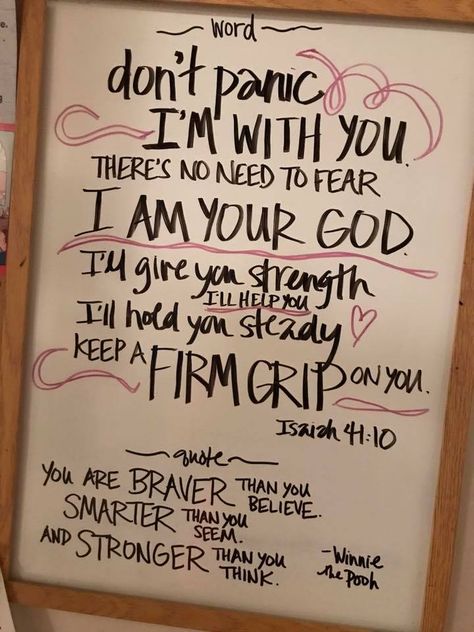 word
don't panic
I'M WITH YOU.
THERE'S NO NEED TO FEAR
I AM YOUR GOD.
I'll give you strength
I'LL HELP YOU
I'll hold you steady
KEEP A FIRM GRIP ON YOU.
Isaiah 41:10
quote
YOU ARE BRAVER THAN YOU BELIEVE.
SMARTER THAN YOU SEEM.
AND STRONGER THAN YOU THINK.
-Winnie
the Pooh